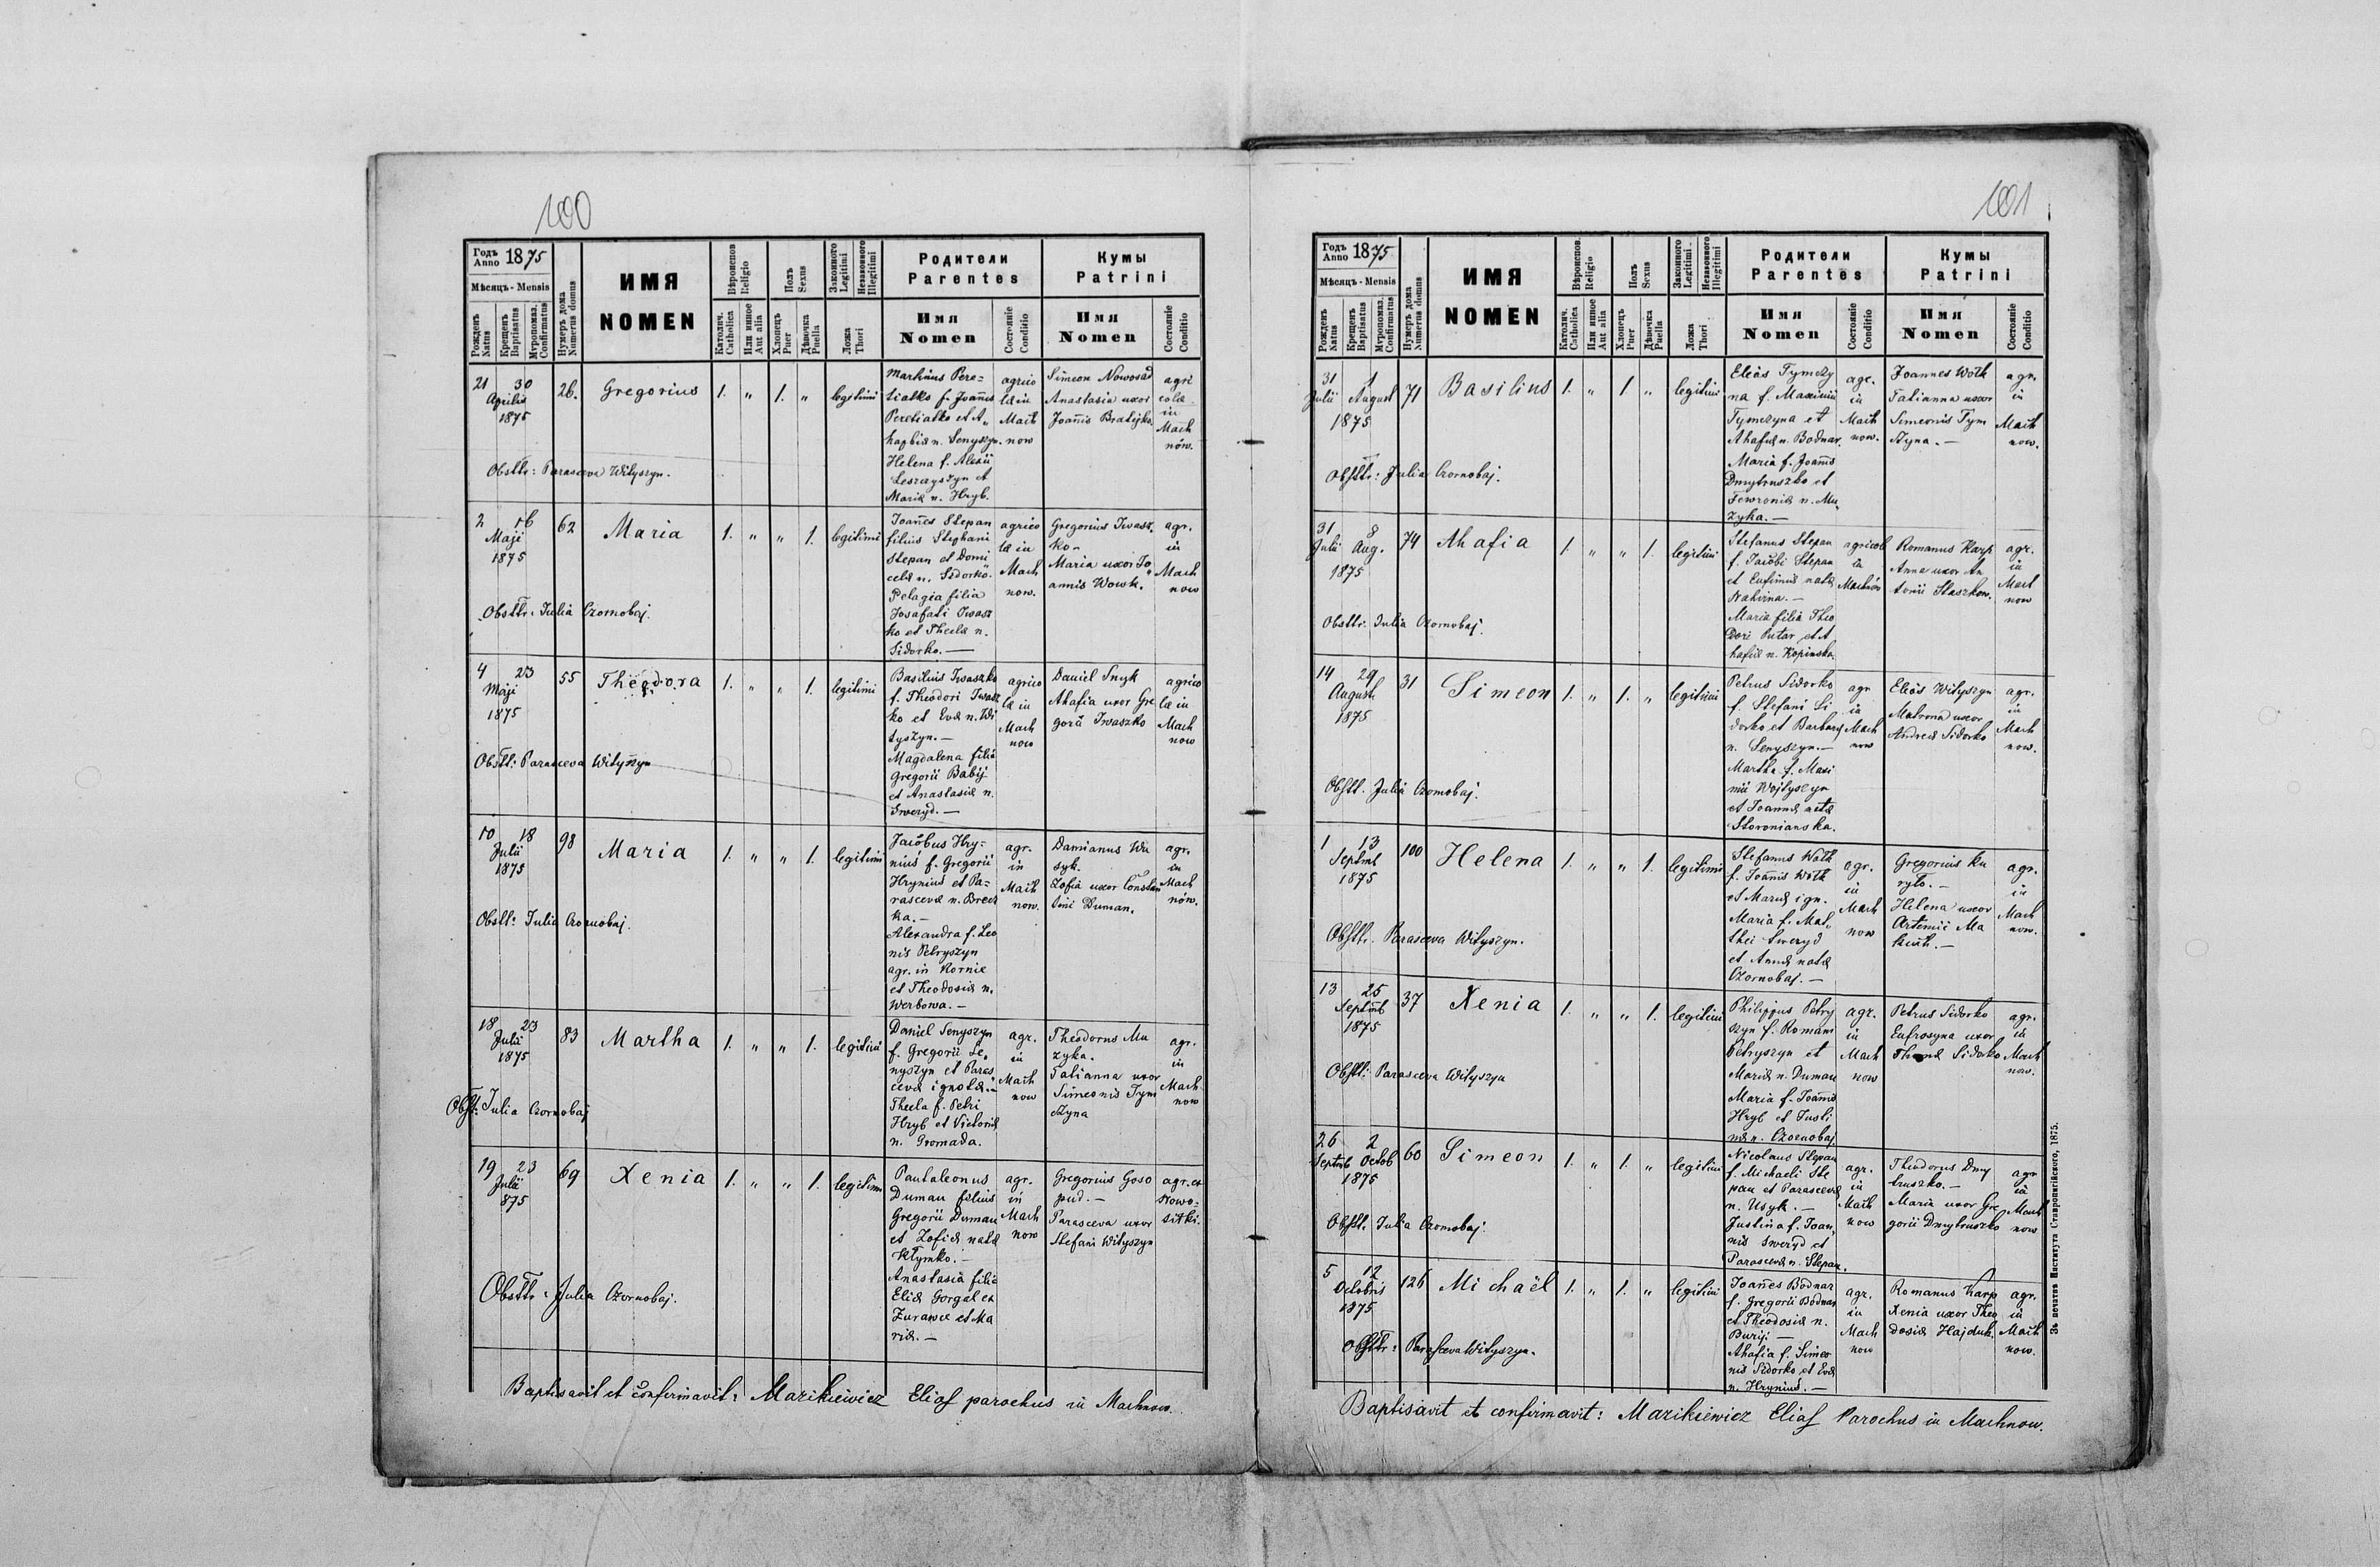 100
Годъ Anno 1875
Мѣсяцъ - Mensis
Рожденъ Natus
Крещенъ Baptisatus
Мѵропомаз. Confirmatus
Нумеръ дома Numerus domus
ИМЯ
NOMEN
Вѣроиспов Religio
Католич. Catholica
Или иное Aut alia
Полъ Sexus
Хлопецъ Puer
Дѣвочка Puella
Законного Legitimi
Незаконного Illegitimi
Ложа Thori
Родители
Parentes
Имя
Nomen
Состояніе Conditio
Кумы
Patrini
Имя
Nomen
Состояніе Conditio
21 30 Aprilis 1875
26.
Gregorius
1. " 1. "
legitimi
Martinus Pere=
tiatko f. Joannis
Peretiatko et A„
haphiæ n. Senyszyn.
Helena f. Alexii
Leszczyszyn et
Mariæ n. Hryb.
agrico
læ in
Mach
now
Simeon Nowosad
Anastasia uxor
Joannis Bratejko
agri
colæ
in
Mach
nów.
Obsttr: Parasceva Wityszyn.
2 16 Maji 1875
62
Maria
1. " " 1.
legitimi
Joannes Stepan
filius Stephani
Stepan et Domi
celæ n. Sidorko.
Pelagia filia
Josafati Iwasz
ko et Theclæ n.
Sidorko. —
agrico
læ in
Mach
now.
Gregorius Iwasz.
ko -
Maria uxor Jo
annis Wowk.
agr.
in
Mach
now
Obsttr: Julia Czornobaj.
4 23 Maji 1875
55
Theodora
1. " " 1.
legitimi
Basilius Iwaszko
f. Theodori Iwasz
ko et Evæ n. Wi
tyszyn. —
Magdalena filia
Gregorii Babij
et Anastasiæ n.
Sweryd. —
agrico
læ in
Mach
now
Daniel Snyk
Ahafia uxor Gre
gorii Iwaszko
agrico
læ in
Mach
now
Obstt: Parasceva Wityszyn
10 18 Julii 1875
98
Maria
1. " " 1.
legitimi
Jacobus Hry=
niuś f. Gregorii
Hryniuś et Pa=
rascevæ n. Brecz
ka. —
Alexandra f. Leo
nis Petryszyn
agr. in Kornie
et Theodosiæ n.
Werbowa. —
agr.
in
Mach
now.
Damianus Wu
syk.
Zofia uxor Constan
tini Duman.
agr.
in
Mach
nów.
Obstt: Julia Czornobaj.
18 23 Julii 1875
83
Martha
1. " " 1.
legitimi
Daniel Senyszyn
f. Gregorii Se„
nyszyn et Paras
cevæ ignotæ. —
Thecla f. Petri
Hryb et Victoriæ
n. Gromada.
agr.
in
Mach
now
Theodorus Mu
zyka.
Tatianna uxor
Simeonis Tym
czyna
agr.
in
Mach
now
Obst: Julia Czornobaj
19 23 Julii 875
69
Xenia
1. " " 1.
legitimi
Pantaleonus
Duman filius
Gregorii Duman
et Zofiæ natæ
Kłymko. —
Anastasia filia
Eliæ Gorgal ex
Zurawce et Ma
riæ. —
agr.
in
Mach
now
Gregorius Goso
pud. —
Parasceva uxor
Stefani Wityszyn
agr. ex
Nowo=
sitki.
Obsttr: Julia Czornobaj.
Baptisavit et confirmavit: Marikiewicz Elias parochus in Machnow.
101
Годъ Anno 1875
Мѣсяцъ - Mensis
Рожденъ Natus
Крещенъ Baptisatus
Мѵропомаз. Confirmatus
Нумеръ дома Numerus domus
ИМЯ
NOMEN
Вѣроиспов. Religio
Католич. Catholica
Или иное Aut alia
Полъ Sexus
Хлопецъ Puer
Дѣвочка Puella
Законного Legitimi
Незаконного Illegitimi
Ложа Thori
Родители
Parentes
Имя
Nomen
Состояніе Conditio
Кумы
Patrini
Имя
Nomen
Состояніе Conditio
31 Julii 1 August 1875
71
Basilius
1. " 1. "
legitimi
Elias Tymczy
na f. Maximi
Tymczyna et
Ahafiæ n. Bodnar.
Maria f. Joannis
Dmytruszko et
Fewroniæ n. Mu„
zyka. —
agr.
in
Mach
now.
Joannes Wołk
Tatianna uxor
Simeonis Tym
czyna. —
agr.
in
Mach
now.
Obsttr: Julia Czornobaj.
31 Julii 8 Aug. 1875
74
Ahafia
1. " " 1.
legitimi
Stefanus Stepan
f. Jacobi Stepan
et Eufimiæ natæ
Nahirna. —
Maria filia Theo
dori Putar et A
hafiæ n. Kopinska.
agricol
in
Machnów
Romanus Karp
Anna uxor An
tonii Staszkow.
agr.
in
Mach
now
Obsttr. Julia Czornobaj.
14 29 Augusti 1875
31
Simeon
1. " 1. "
legitimi
Petrus Sidorko
f. Stefani Si
dorko et Barbaræ
n. Senyszyn. —
Martha f. Maxi
mii Wojtyszyn
et Joannæ natæ
Storonianska.
agr
in
Mach
now
Elias Wityszyn
Matrona uxor
Andreæ Sidorko
agr.
in
Mach
now.
Obstt. Julia Czornobaj.
1 13 Septmb 1875
100
Helena
1. " " 1.
legitimi
Stefanus Wołk
f. Joannis Wołk
et Mariæ ign.
Maria f. Mat„
thei Sweryd
et Annæ natæ
Czornobaj. —
agr.
in
Mach
now
Gregorius Ku
ryło. —
Helena uxor
Artemii Ma
agr.
in
Mach
now.
Obsttr. Parasceva Wityszyn.
13 25 Septmb 1875
37
Xenia
1. " " 1.
legitimi
Philippus Petry
szyn f. Romani
Petryszyn et
Mariæ n. Duman
Maria f. Joannis
Hryb et Justi
næ n. Czornobaj
agr.
in
Mach
now
Petrus Sidorko
Eufrosyna uxor
Thomæ Sidorko
agr.
in
Mach
now.
Obstt: Parasceva Wityszyn
26 Septmb 2 Octob 1875
60
Simeon
1. " 1. "
legitimi
Nicolaus Stepan
f. Michaeli Ste
pan et Parascevæ
n. Usyk. —
Justina f. Joan„
nis Sweryd et
Parascevæ n. Stepan.
agr.
in
Mach
now
Theodorus Dmy
truszko. —
Maria uxor Gre
gorii Dmytruszko
agr
in
Mach
now
Obstt. Julia Czornobaj.
5 12 Octobris 1875
126
Michaël
1. " 1. "
legitimi
Joannes Bodnar
f. Gregorii Bodnar
et Theodosiæ n.
Buryj. —
Ahafia f. Simeo
nis Sidorko et Evæ
n. Hryniuś. —
agr.
in
Mach
now
Romanus Karp
Xenia uxor Theo
dosiæ Hajduk.
agr.
in
Mach
now.
Obsttr: Parasceva Wityszyn.
Baptisavit et confirmavit: Marikiewicz Elias Parochus in Machnow.
Зъ печатнѣ Института Ставропигійского, 1875.